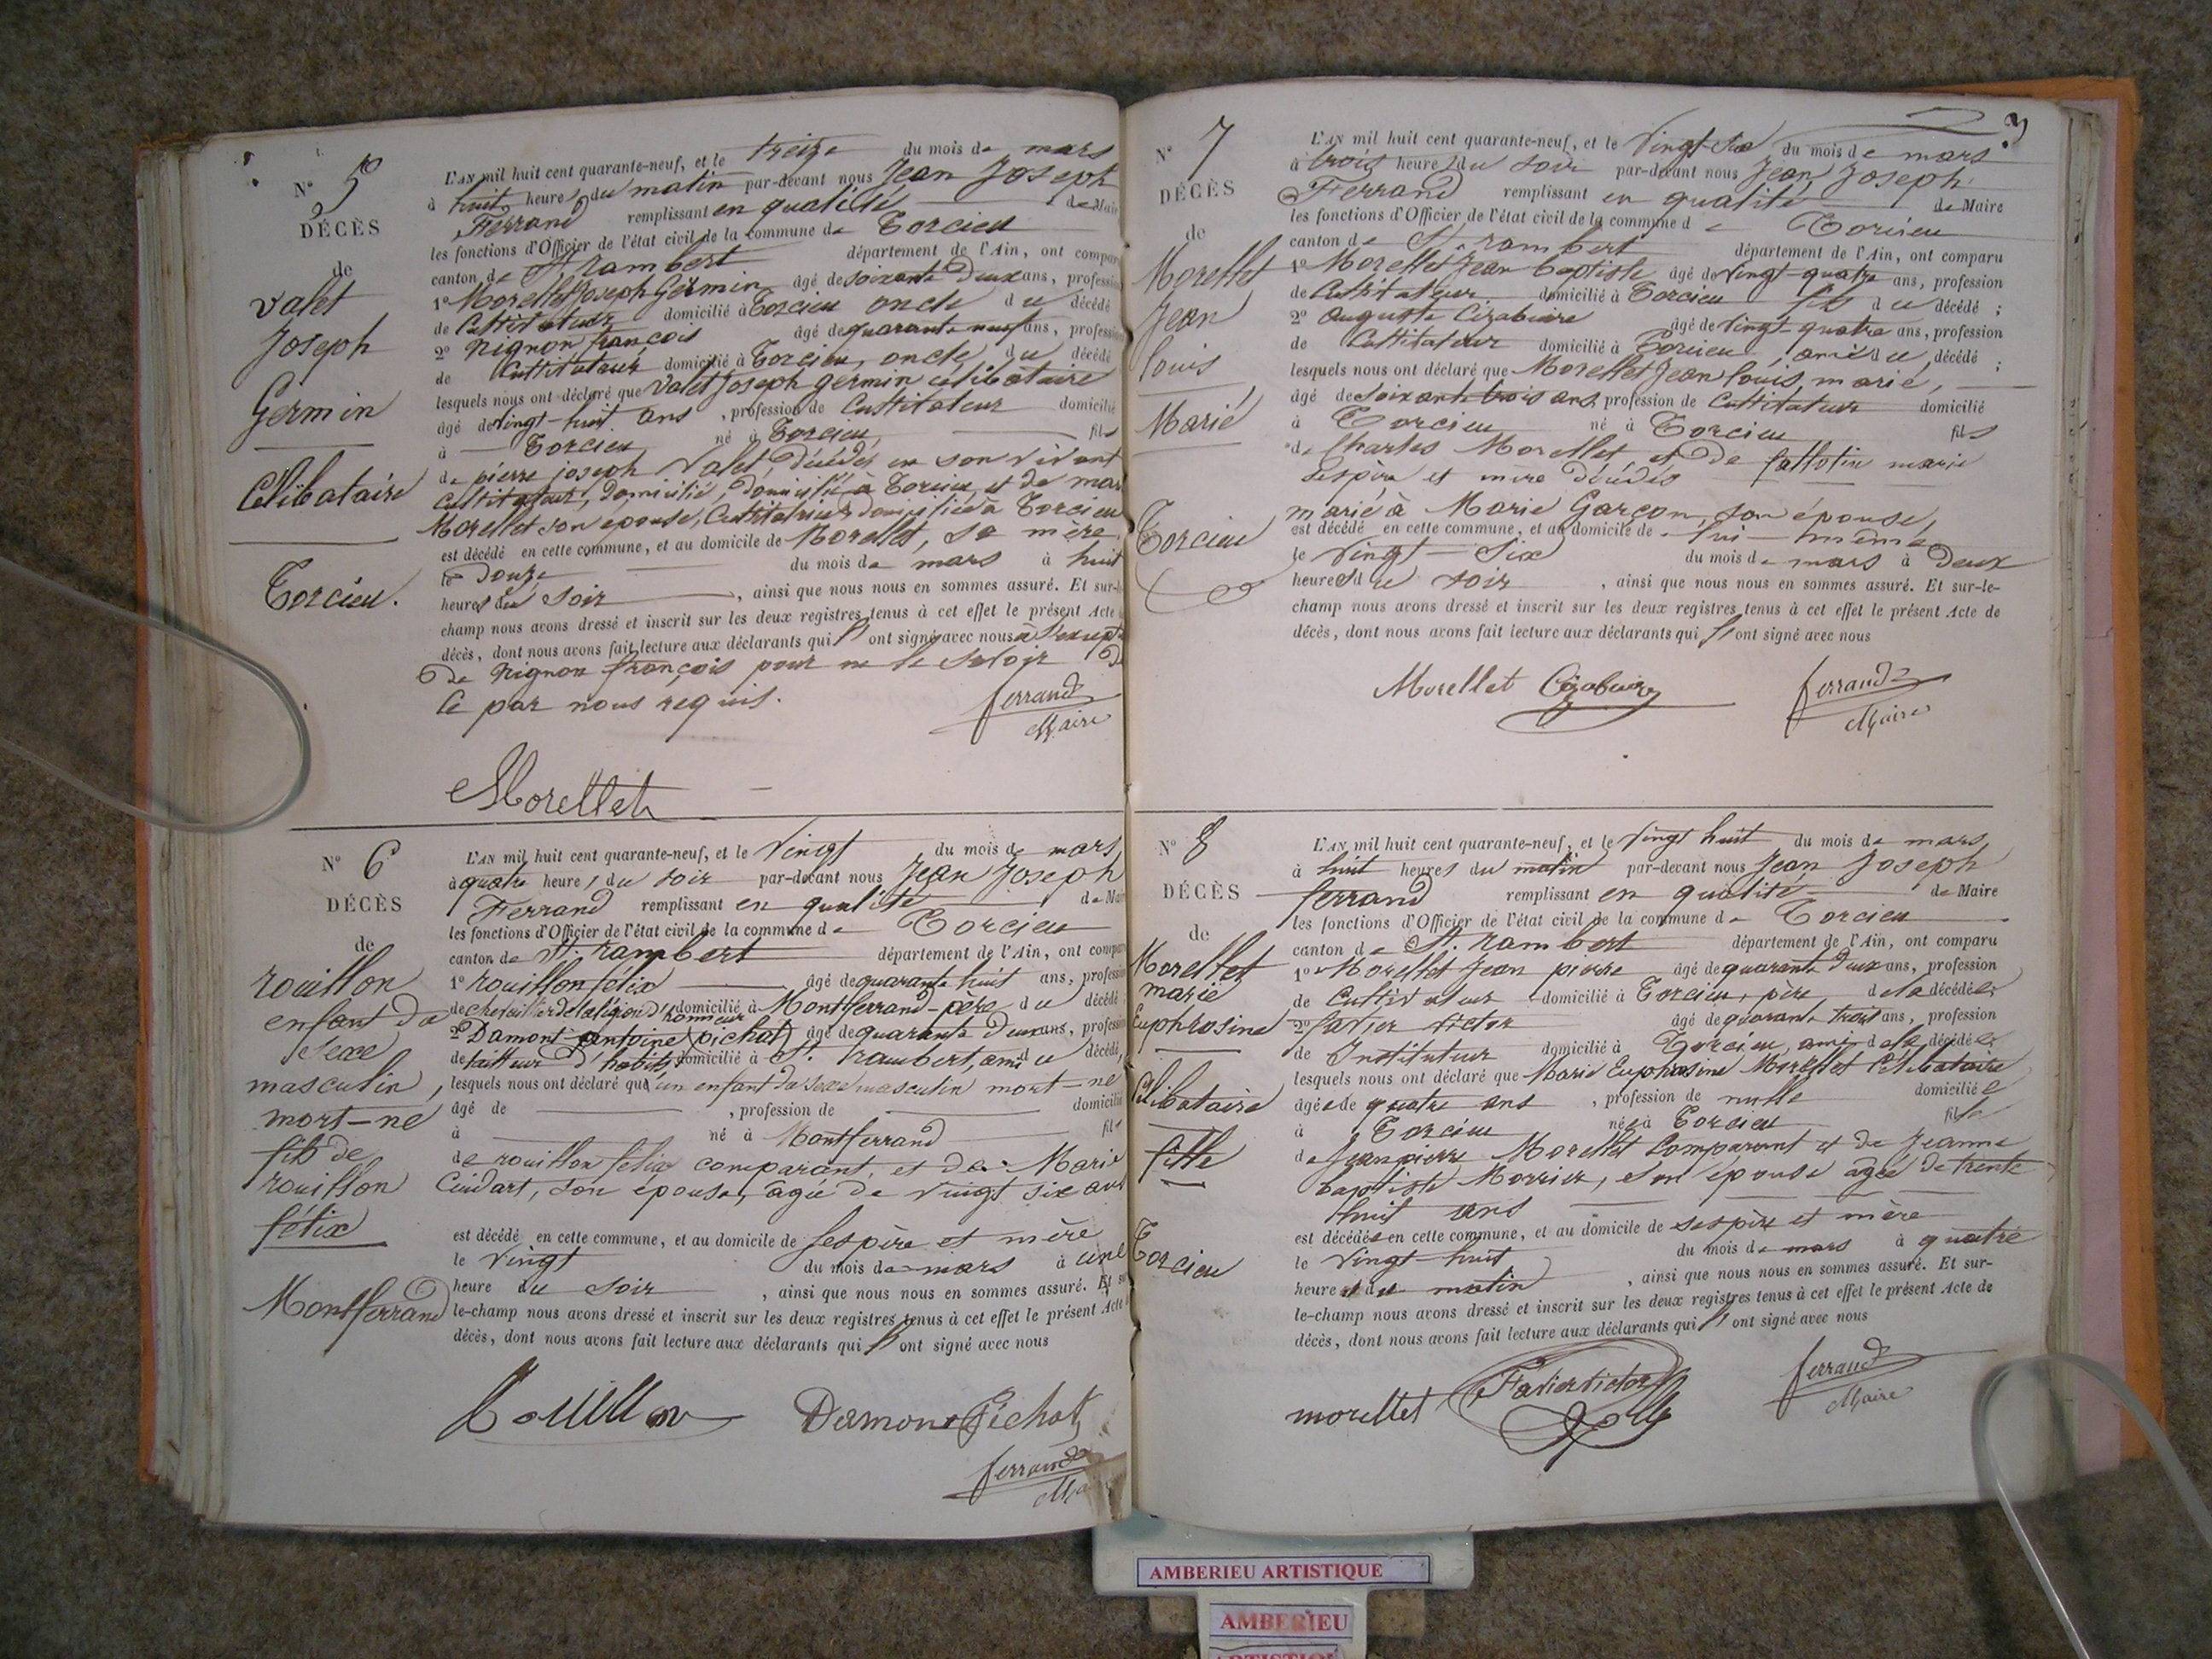 N° 5
DÉCÈS
de
valet
Joseph
Germin
Célibataire
Torcieu.
L'AN mil huit cent quarante-neuf, et le treize du mois de mars
à huit heures du matin par-devant nous Jean Joseph
Ferrand remplissant en qualité de Maire
les fonctions d'Officier de l'état civil de la commune de Torcieu
canton de St. rambert département de l'Ain, ont compar
1° Morellet Joseph Germin âgé de soixante deux ans, profession
de Cultivateur domicilié à Torcieu oncle du décédé
2° Nignon françois âgé de quarante neuf ans, profession
de Cultivateur domicilié à Torcieu, oncle du décédé
lesquels nous ont déclaré que valet Joseph germin célibataire
âgé de vingt-huit ans, profession de Cultivateur domicilié
à Torcieu né à Torcieu, fils
de pierre joseph valet, décédé, en son vivant
Cultivateur, domicilié, domicilié à Torcieu et de mar
Morellet son épouse, Cultivatrice domiciliée à Torcieu
est décédé en cette commune, et au domicile de Morellet, sa mère
le douze du mois de mars à huit
heures du soir, ainsi que nous nous en sommes assuré. Et sur-le
champ nous avons dressé et inscrit sur les deux registres tenus à cet effet le présent Acte
décès, dont nous avons fait lecture aux déclarants qui l'ont signé avec nous à l'except
de Nignon françois pour ne le savoir de
ce par nous requis.
ferrand
Maire
Morellet
N° 6
DÉCÈS
de
rouillon
enfant de
sexe
masculin,
mort-né
fils de
rouillon
félix
Montferrand
L'AN mil huit cent quarante-neuf, et le vingt du mois de mars
à quatre heures du soir par-devant nous Jean Joseph
Ferrand remplissant en qualité de Mai
les fonctions d'Officier de l'état civil de la commune de Torcieu
canton de St. rambert département de l'Ain, ont compar
1° rouillon félix âgé de quarante huit ans, profession
de chevalier de la légion d'honneur domicilié à Montferrand-père du décédé
2° Damont antoine (pichat) âgé de quarante deux ans, profession
de tailleur d'habits, domicilié à St. rambert, ami du décédé,
lesquels nous ont déclaré qu'un enfant de sexe masculin mort-né
âgé de , profession de domicilié
à né à Montferrand fils
de rouillon félix comparant, et de Marie
Cuidart, son épouse, âgée de vingt six ans
est décédé en cette commune, et au domicile de ses père et mère
le vingt du mois de mars à une
heure du soir, ainsi que nous nous en sommes assuré. Et sur
le-champ nous avons dressé et inscrit sur les deux registres tenus à cet effet le présent Acte
décès, dont nous avons fait lecture aux déclarants qui l'ont signé avec nous
Rouillon Damont Pichat
ferrand
Ma
3
N° 7
DÉCÈS
de
Morellet
Jean
louis
Marié
Torcieu
L'AN mil huit cent quarante-neuf, et le vingt-six du mois de mars
à trois heures du soir par-devant nous Jean Joseph
Ferrand remplissant en qualité de Maire
les fonctions d'Officier de l'état civil de la commune de Torcieu
canton de St. rambert département de l'Ain, ont comparu
1° Morellet Jean baptiste âgé de vingt-quatre ans, profession
de Cultivateur domicilié à Torcieu fils du décédé ;
2° Auguste Cizabuire âgé de vingt-quatre ans, profession
de Cultivateur domicilié à Torcieu, ami du décédé ;
lesquels nous ont déclaré que Morellet Jean louis, marié,
âgé de soixante trois ans, profession de Cultivateur domicilié
à Torcieu né à Torcieu fils
de Charles Morellet et de marie
ses père et mère décédés
marié à Marie Garçon, son épouse,
est décédé en cette commune, et au domicile de lui-même
le vingt-six du mois de mars à deux
heures du soir, ainsi que nous nous en sommes assuré. Et sur-le-
champ nous avons dressé et inscrit sur les deux registres tenus à cet effet le présent Acte de
décès, dont nous avons fait lecture aux déclarants qui l'ont signé avec nous
Morellet Cizabuire ferrand
Maire
N° 8
DÉCÈS
de
Morellet
marie
Euphrosine
Célibataire
fille
Torcieu
L'AN mil huit cent quarante-neuf, et le vingt huit du mois de mars,
à huit heures du matin par-devant nous Jean Joseph
ferrand remplissant en qualité de Maire
les fonctions d'Officier de l'état civil de la commune de Torcieu
canton de St. rambert département de l'Ain, ont comparu
1° Morellet Jean pierre âgé de quarante deux ans, profession
de Cultivateur domicilié à Torcieu, père de la décédée
2° favier victor âgé de quarante trois ans, profession
de Instituteur domicilié à Torcieu, ami de la décédée
lesquels nous ont déclaré que Marie Euphrosine Morellet Célibataire
âgée de quatre ans, profession de nulle domiciliée
à Torcieu née à Torcieu fille
de Jean pierre Morellet Comparant et de Jeanne
baptiste Morrier, son épouse agée de trente
huit ans
est décédée en cette commune, et au domicile de ses père et mère
le vingt-huit du mois de mars à quatre
heures du matin, ainsi que nous nous en sommes assuré. Et sur-
le-champ nous avons dressé et inscrit sur les deux registres tenus à cet effet le présent Acte de
décès, dont nous avons fait lecture aux déclarants qui l'ont signé avec nous
morellet Favier victor ferrand
Maire
AMBERIEU ARTISTIQUE
AMBERIEU
ARTISTIQUE